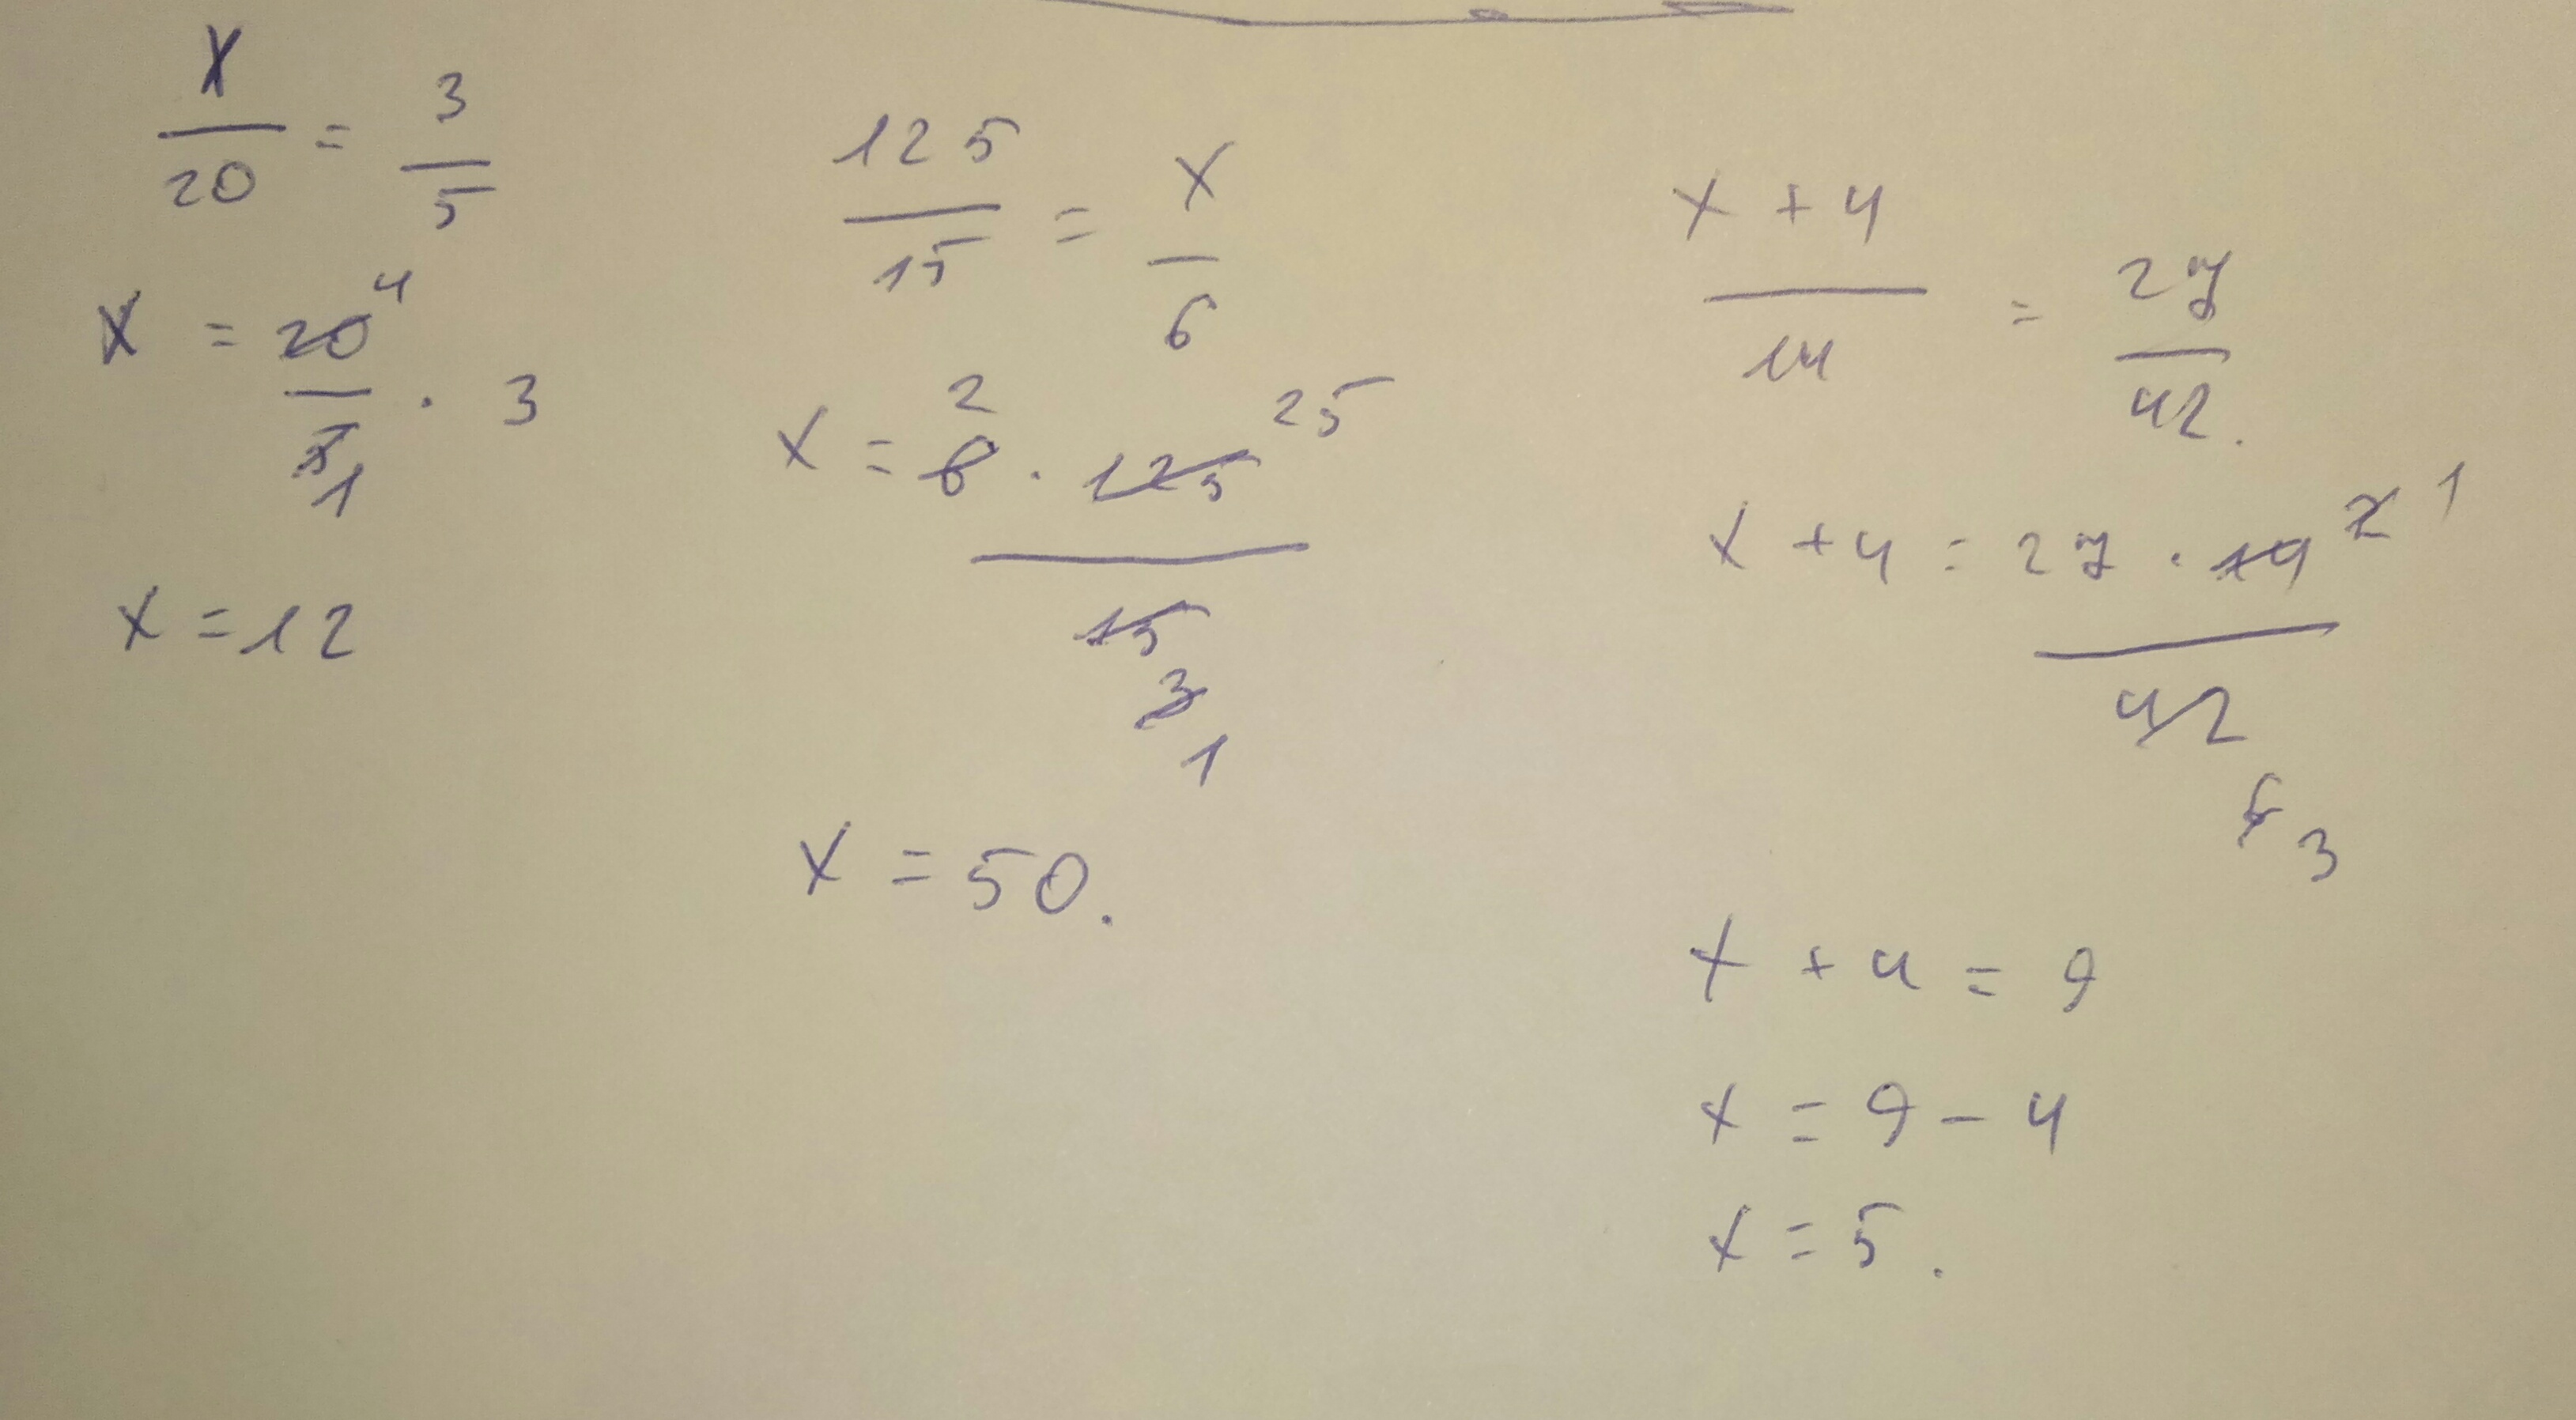 x/20 = 3/5
x = 20 4 / 5 1 · 3
x = 12
125/15 = x/6
x = 6 2 · 125 25 / 15 3 1
x = 50.
x + 4 / 14 = 27/42.
x + 4 = 27 · 14 2 1 / 42 6 3
x + 4 = 9
x = 9 - 4
x = 5.